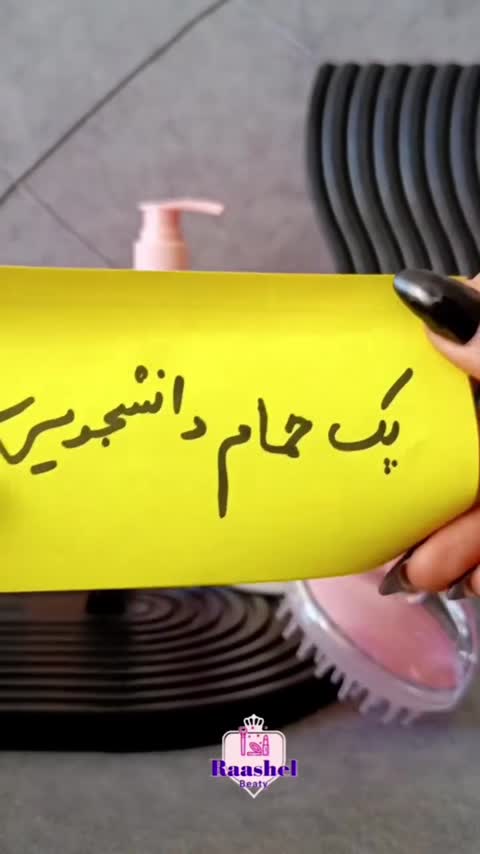 پک حمام دانشجویی
Raashel
Beaty